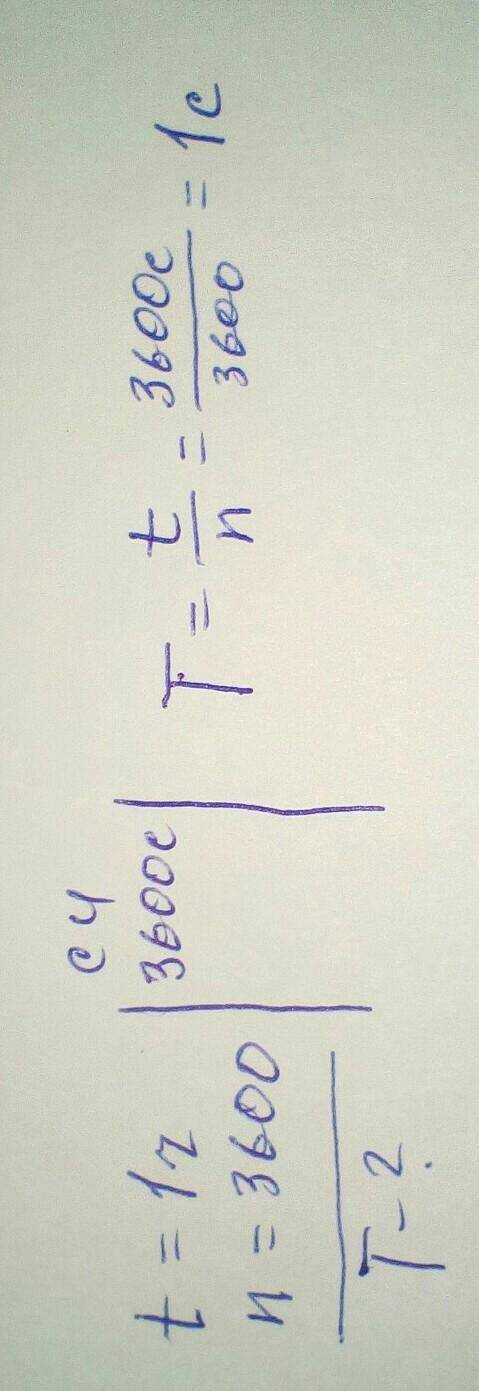 t = 1г
n = 3600
T - ?
СЧ
3600с
T = t/n = 3600с/3600 = 1с